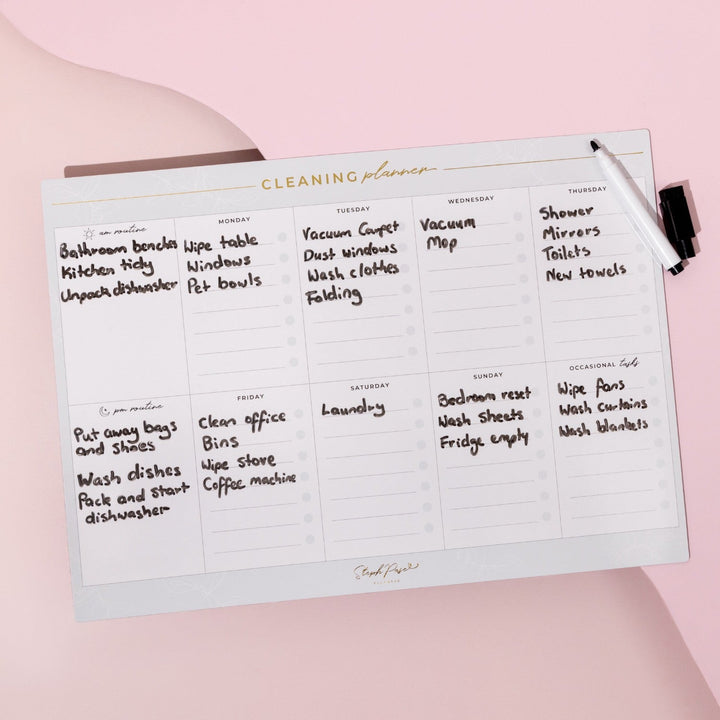 CLEANING planner
am routine
Bathroom benches
Kitchen tidy
Unpack dishwasher
MONDAY
Wipe table
Windows
Pet bowls
TUESDAY
Vacuum Carpet
Dust windows
Wash clothes
Folding
WEDNESDAY
Vacuum
Mop
THURSDAY
Shower
Mirrors
Toilets
New towels
pm routine
Put away bags
and shoes
Wash dishes
Pack and start
dishwasher
FRIDAY
Clean office
Bins
Wipe stove
Coffee machine
SATURDAY
Laundry
SUNDAY
Bedroom reset
Wash Sheets
Fridge empty
OCCASIONAL tasks
Wipe fans
Wash curtains
Wash blankets
Steph Pase